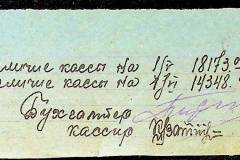 личие кассы на 1/V 18173.0
личие кассы на 4/VI 14348.
Бухгалтер
кассир